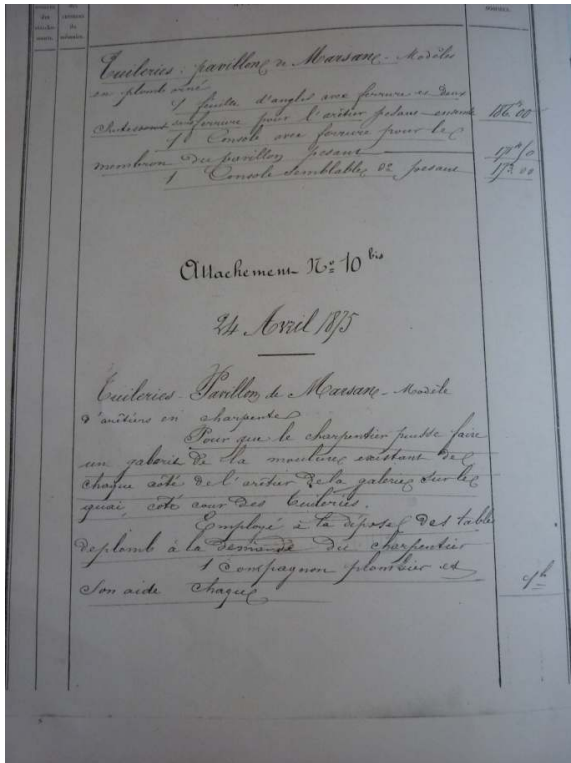 Tuileries : pavillon de Marsan - Modèles
en plomb orné
1 feuille d'angle avec ferrure et deux
sans ferrure pour l'arêtier pesant ensemble 186.00
1 Console avec ferrure pour le
membron du pavillon pesant
1 Console semblable pesant 173.00
Attachement No 10 bis
24 Avril 1875
Tuileries - Pavillon de Marsan - Modèle
d'arêtiers en charpente
Pour que le charpentier puisse faire
un gabarit de la moulure existant de
chaque côté de l'arêtier de la galerie sur le
quai, côté cour des Tuileries.
Employé à la dépose des tables
de plomb à la demande du charpentier
1 Compagnon plombier et
son aide chaque